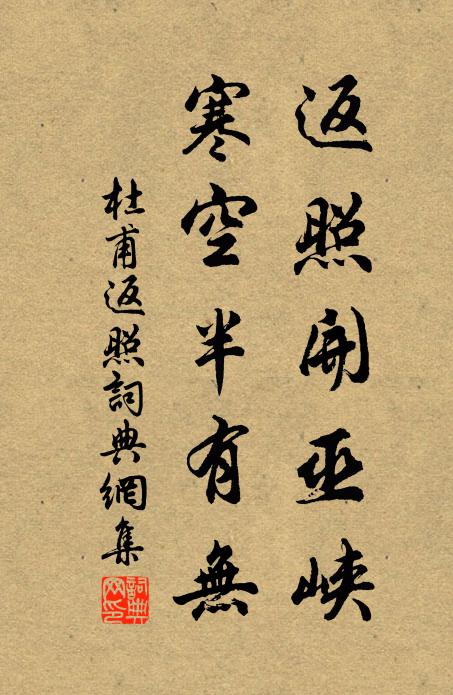 返照開巫峽
寒空半有無
杜甫返照詞典網集
詞典網印